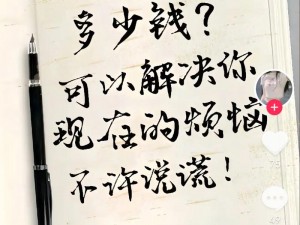 多少钱？
可以解决你
现在的烦恼
不许说谎！